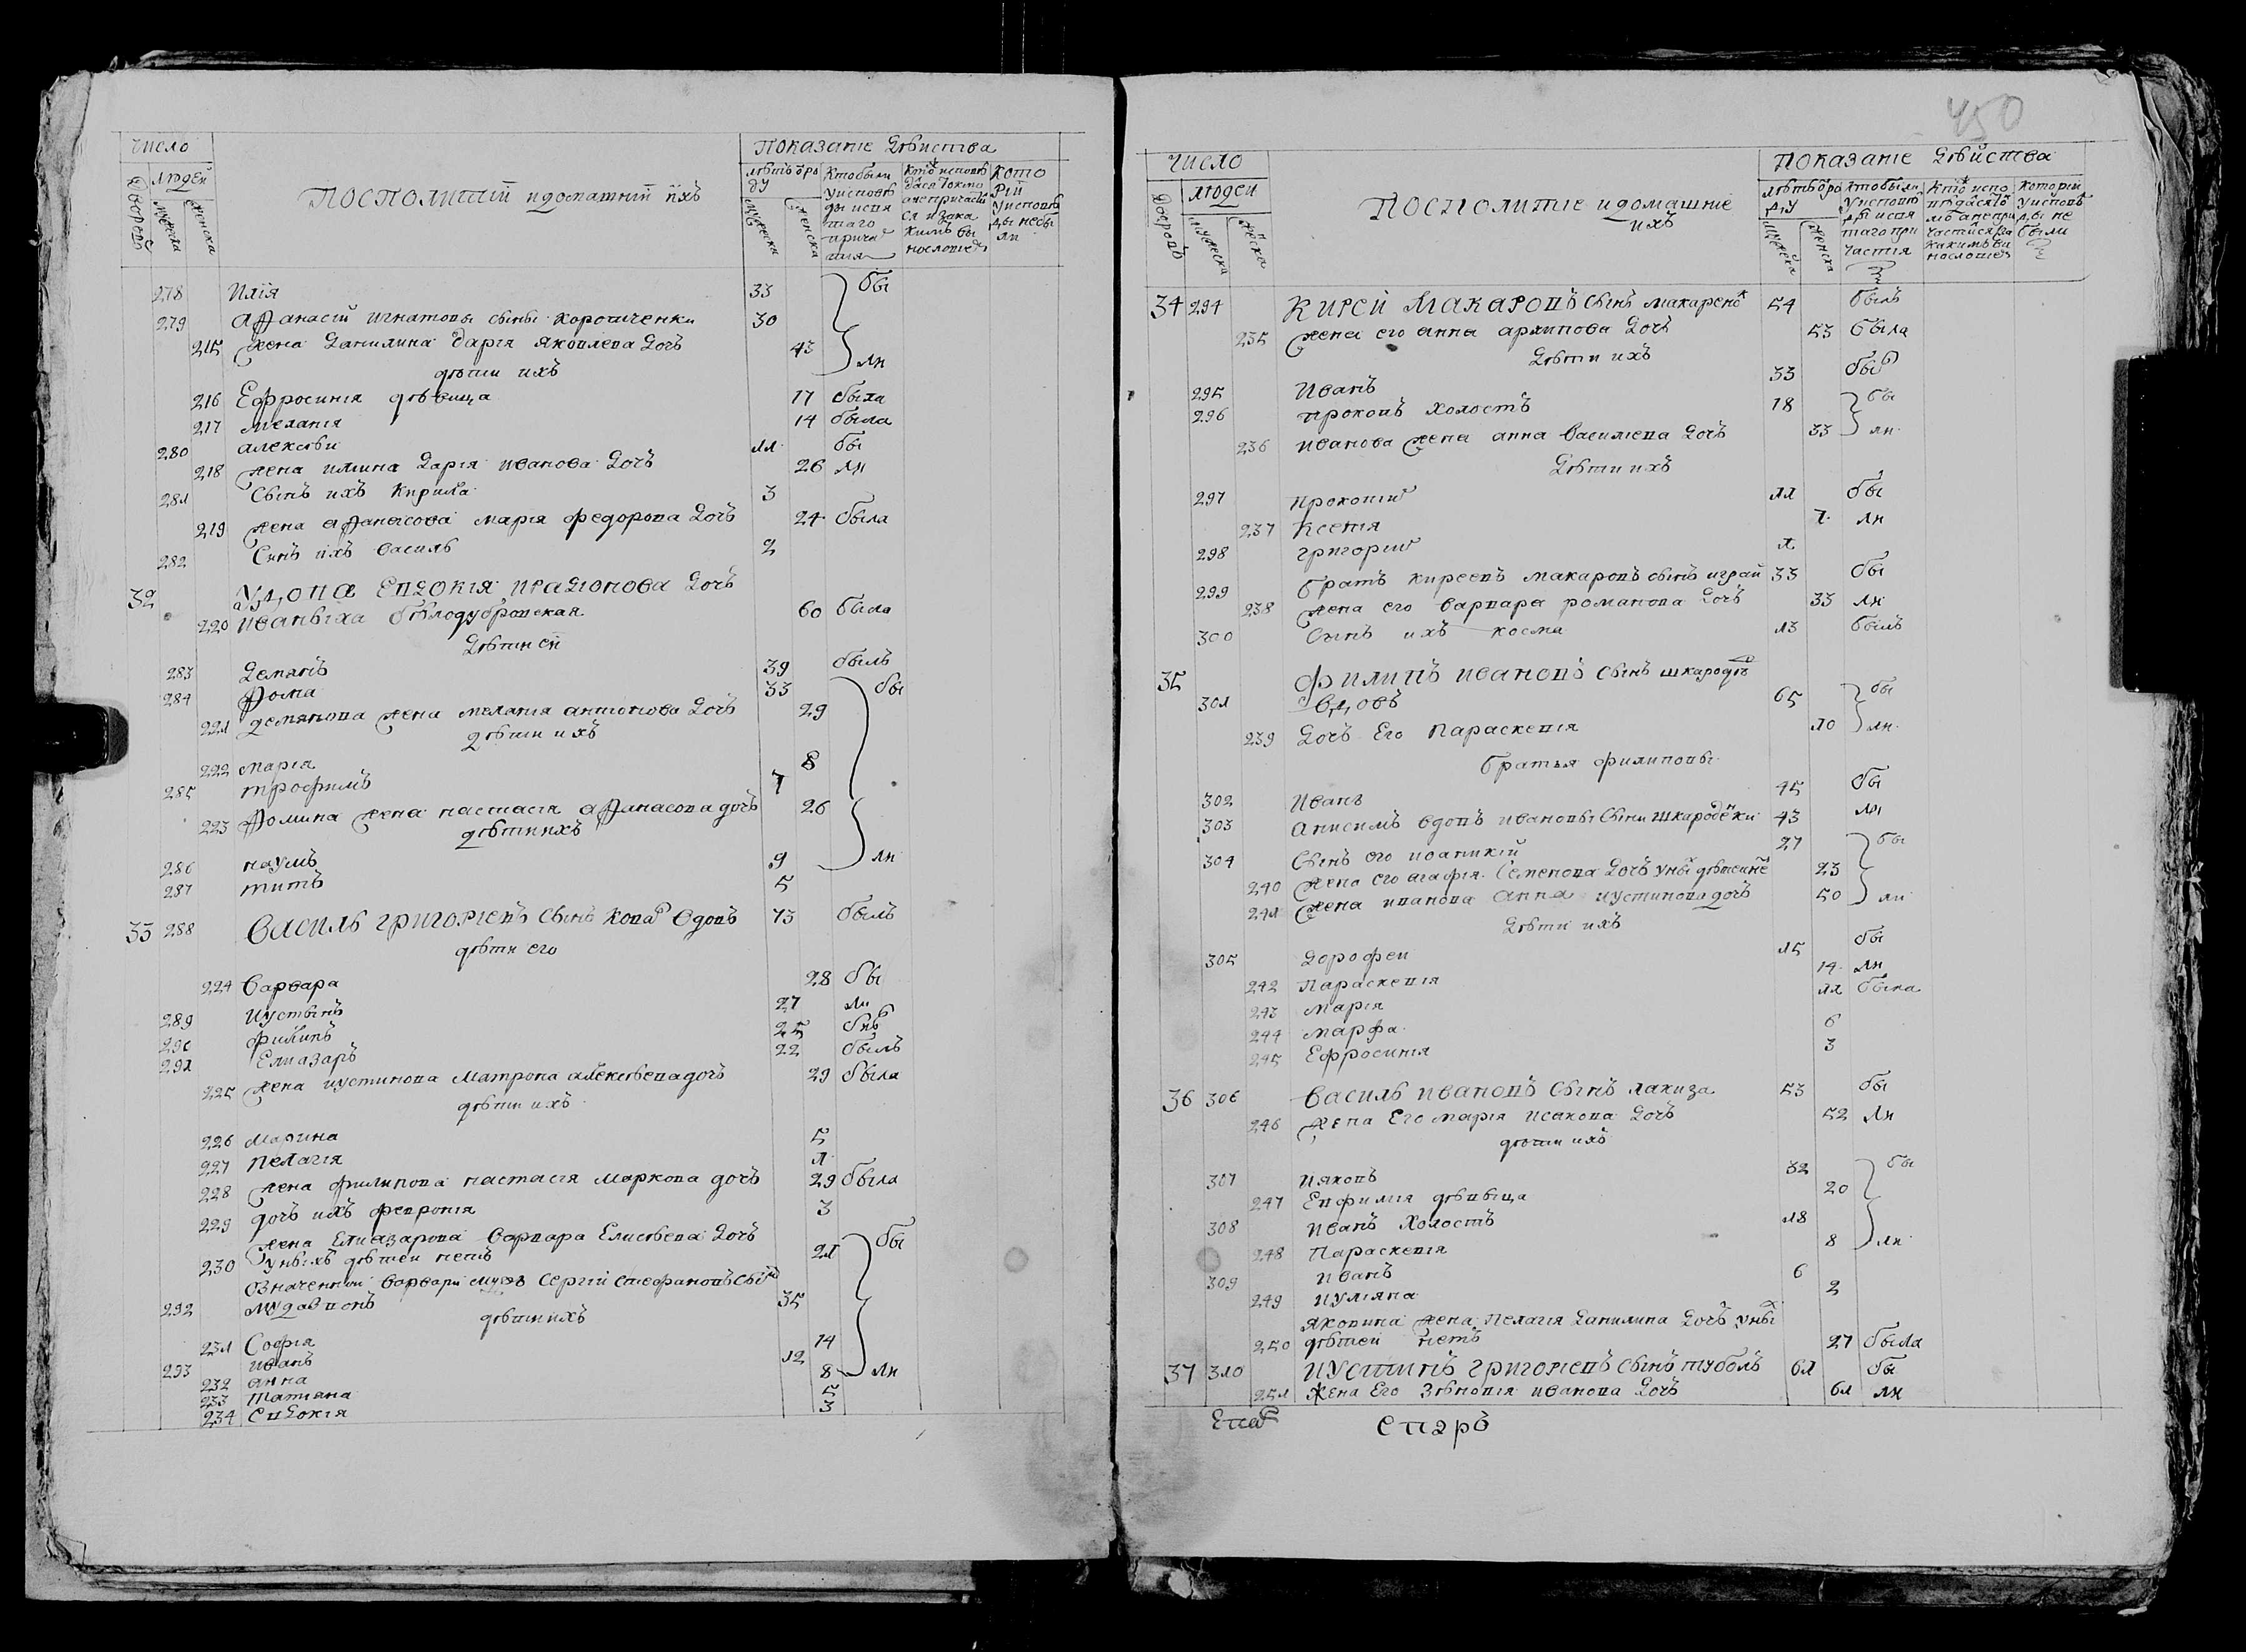 число
показание действа
дворовъ
людей
мужеска
женска
посполитіи и домашніи ихъ
летъ отъ роду
мужеска
женска
кто были у исповеди и святаго причастия
кото рій у исповеды не были
278 Илія 33 бы
279 Афанасіи Игнатовы сыны Хоротченки 30
215 жена Данилина Дарія Яковлева дочь 43 ли
дѣти ихъ
216 Ефросинія дѣвица 17 была
217 Меланія 14 была
280 алексѣи 11 бы
218 жена илиина Дарія иванова дочъ 26 ли
281 Сынъ ихъ Кирила 3
219 жена афанасова марія федорова дочъ 24 была
282 Сынъ ихъ василь 2
32 удова Евдокія иванова дочъ
220 иваныха бѣлодубровская 60 была
дѣти ей
283 Демянъ 39 былъ
284 Фома 33 бы
221 демянова жена меланія антонова дочъ 29
дѣти ихъ
222 марія 8
285 трофимъ 7
223 Фомина жена настасія афанасова дочъ 26
дѣти ихъ
286 наумъ 9 ли
287 титъ 5
33 288 василь григоріевъ сынъ ковал вдовъ 73 былъ
дѣти его
224 варвара 28 бы
289 иустинъ 27 ли
290 филипъ 25 былъ
291 Елиазаръ 22 былъ
225 жена иустинова матрона алексѣева дочъ 29 была
дѣти ихъ
226 марина 5
227 пелагія 1
228 жена филипова настасія маркова дочъ 29 была
229 дочъ ихъ февронія 3
жена Елиазарова варвара Елисѣева дочъ
230 у ныхъ дѣтеи нетъ 21 бы
означеннои варвари мужъ Сергіи стефановъ сынъ
292 35
дѣти ихъ
231 Софія 14
293 иванъ 12
232 анна 8 ли
233 татіана 5
234 евдокія 3
450
число
показаніе дѣйства
дворовъ
людеи
мужеска
женска
посполитіе и домашніе
ихъ
34 294 Кирей Макаровъ сынъ макаренк 54 былъ
235 жена его анна архипова дочъ 53 была
дѣти ихъ
295 Иванъ 33 былъ
296 прокопъ холостъ 18 бы
236 иванова жена анна василіева дочъ 33 ли
дѣти ихъ
297 прокопий 11 бы
237 Ксенія 7 ли
298 григории 1
299 братъ киреевъ макаровъ сынъ играй 33 бы
238 жена его варвара романова дочъ 33 ли
300 Сынъ ихъ косма 13 былъ
35 филипъ ивановъ сынъ шкародѣ
301 вдовъ 65 бы
239 дочъ Его Параскевія 10 ли
братья филиповы
302 Иванъ 45 бы
303 анисимъ вдовъ ивановы сыни шкародѣки 43 ли
304 Сынъ его иоаникій 27 бы
240 жена его агафія семенова дочъ 23
241 жена иванова анна иустинова дочъ 50 ли
дѣти ихъ
305 дорофеи 15 бы
242 параскевія 14 ли
243 марія 11 была
244 марфа 6
245 Ефросинія 3
36 306 василь ивановъ сынъ лакиза 53 бы
246 жена Его марія исакова дочъ 52 ли
дѣти ихъ
307 Ияковъ 32 бы
247 Евфимія дѣвыца 20
308 иванъ холостъ 18
248 Параскевія 8 ли
309 иванъ 6
249 иуліяна 2
яковина жена пелагія данилина дочъ у ных
250 дѣтеи нетъ 27 была
37 310 иустинъ григоріевъ сынъ туболъ 61 бы
251 жена Его Зѣновія иванова дочъ 61 ли